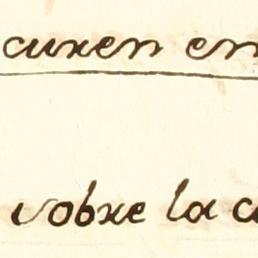 curen en
sobre la c